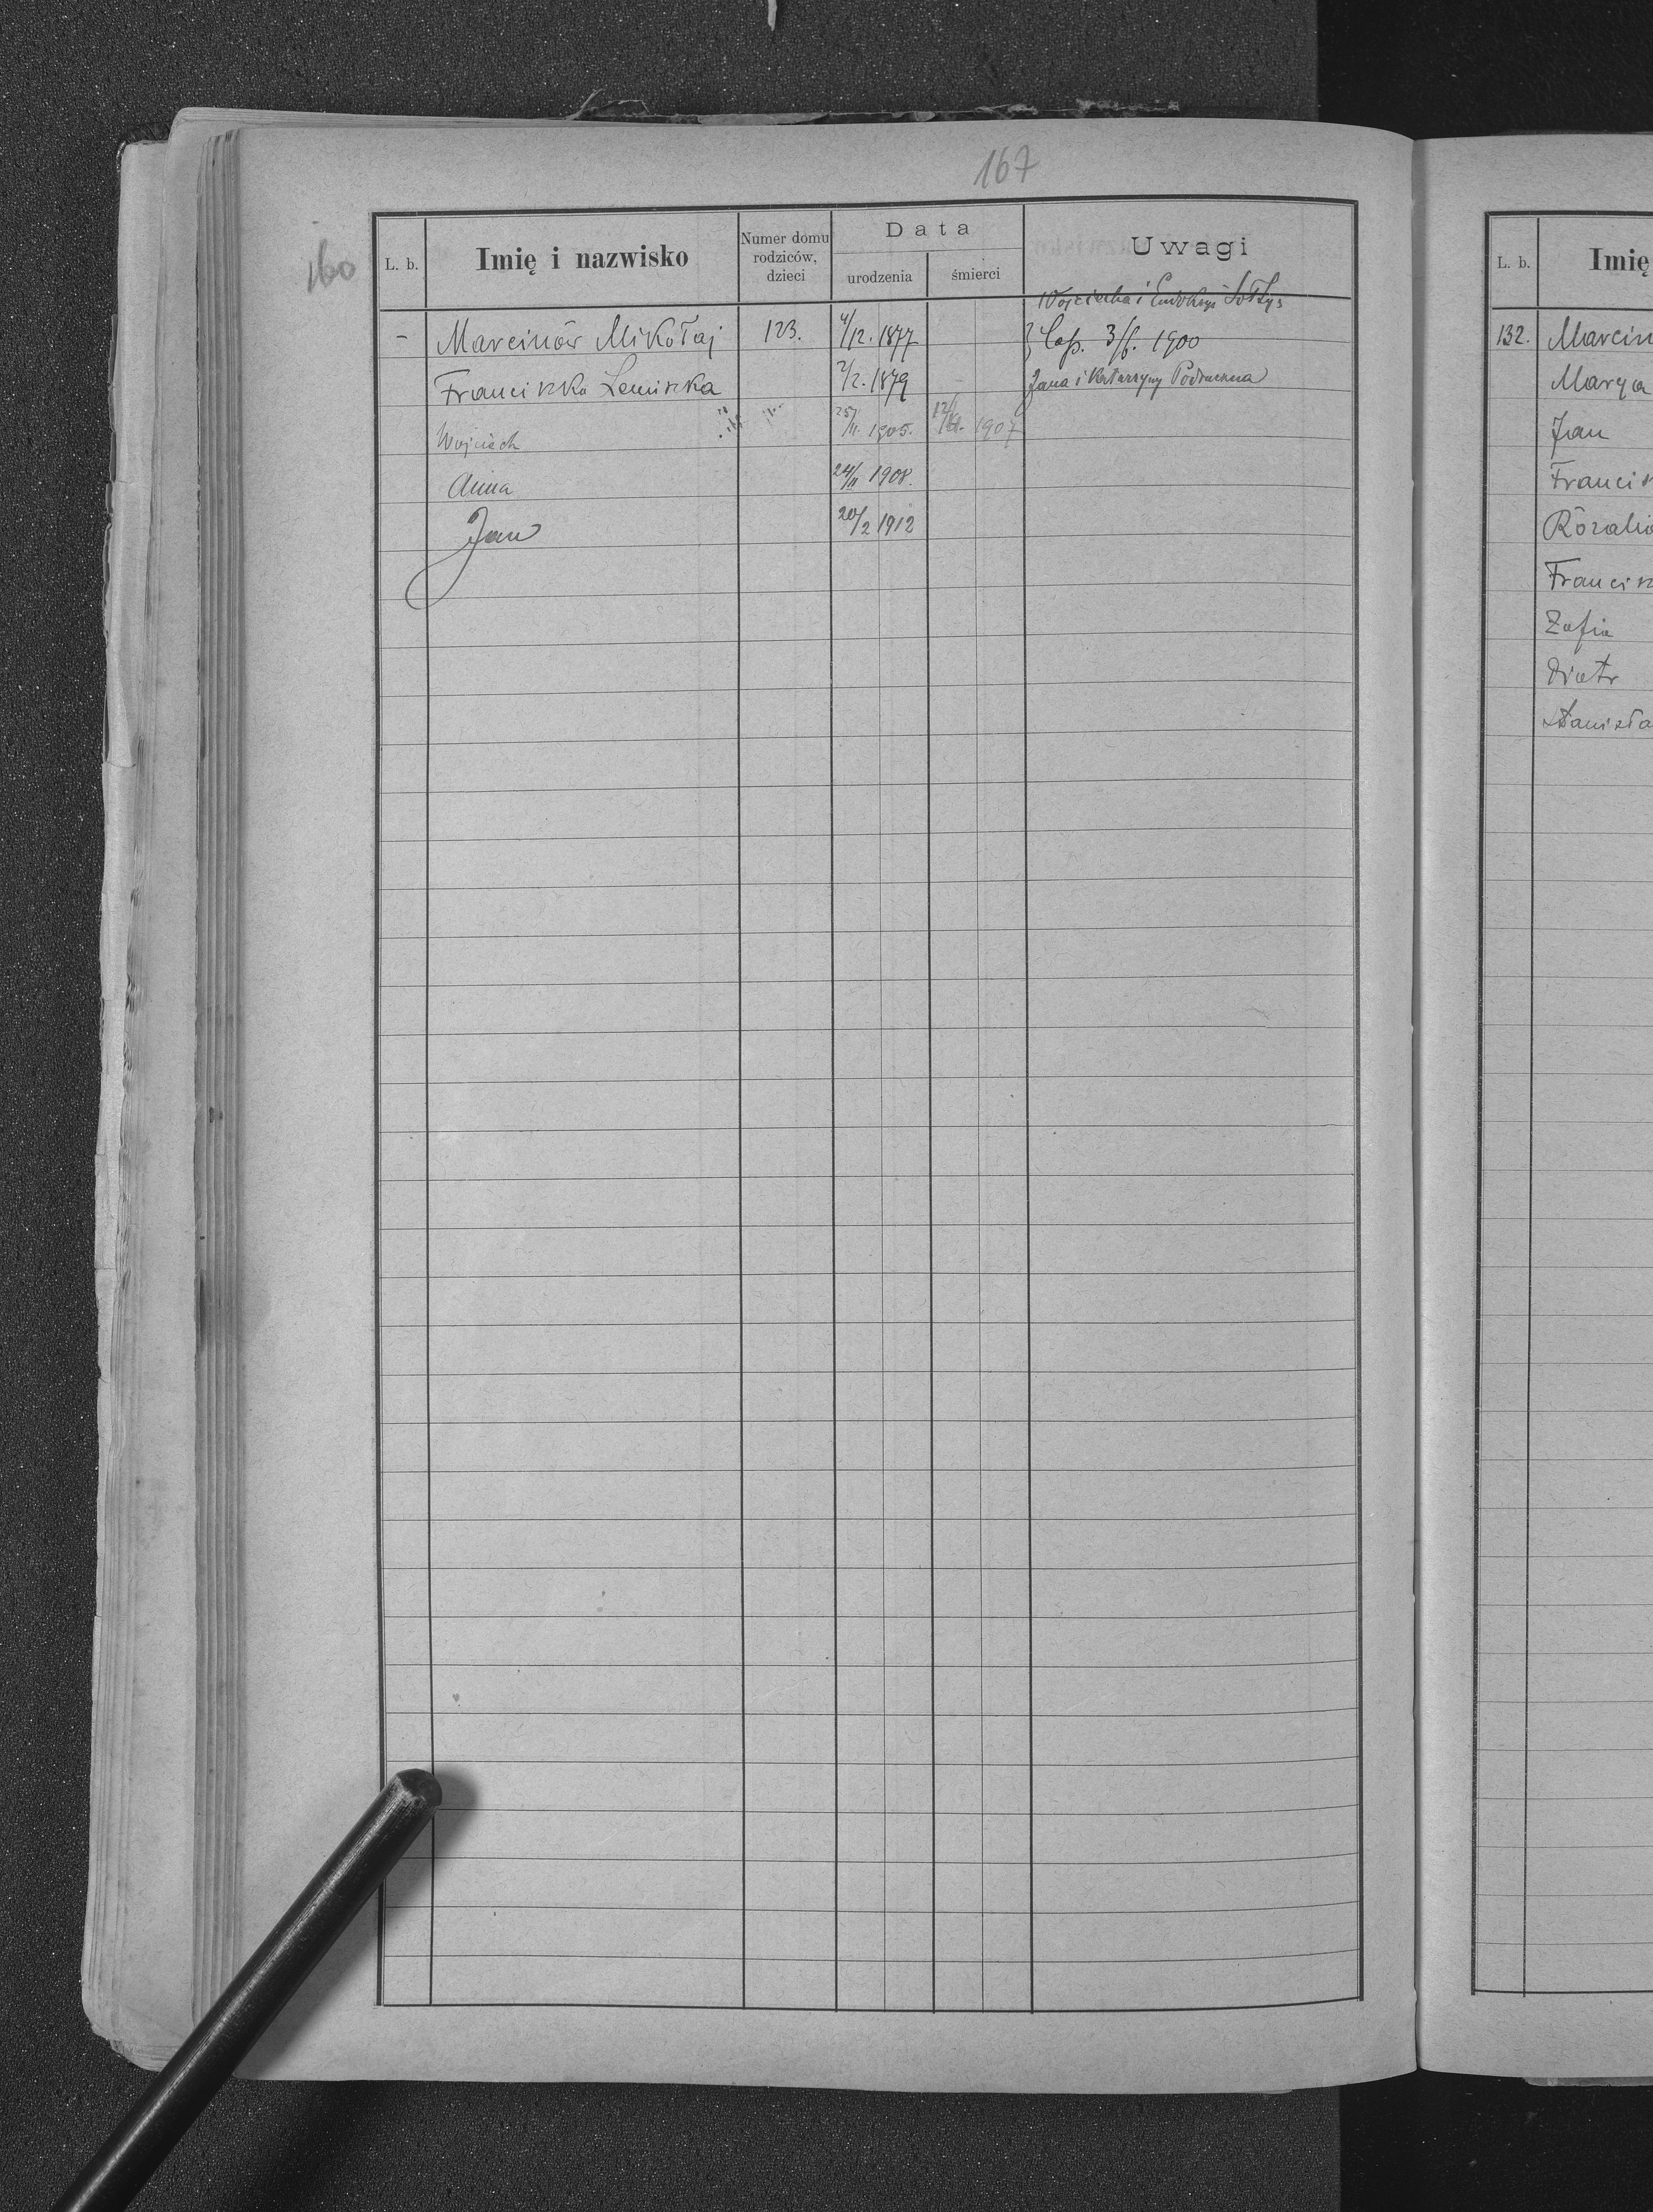 167
160
L. b.
Imię i nazwisko
Numer domu rodziców, dzieci
Data
urodzenia
śmierci
Uwagi
Wojciecha i Eudoksyi Sołtys
- Marcinów Mikołaj 123. 4/12. 1877 Cop. 3/6. 1900
Franciszka Lemiszka 2/2. 1879 Jana i Katarzyny
Wojciech 25/11. 1905. 1907
Anna 24/11 1908.
Jan 20/2 1912
L. b. Imię
132. Marcin
Marya
Jan
Francis
Rozalia
Francisz
Zofia
Piotr
Stanisła